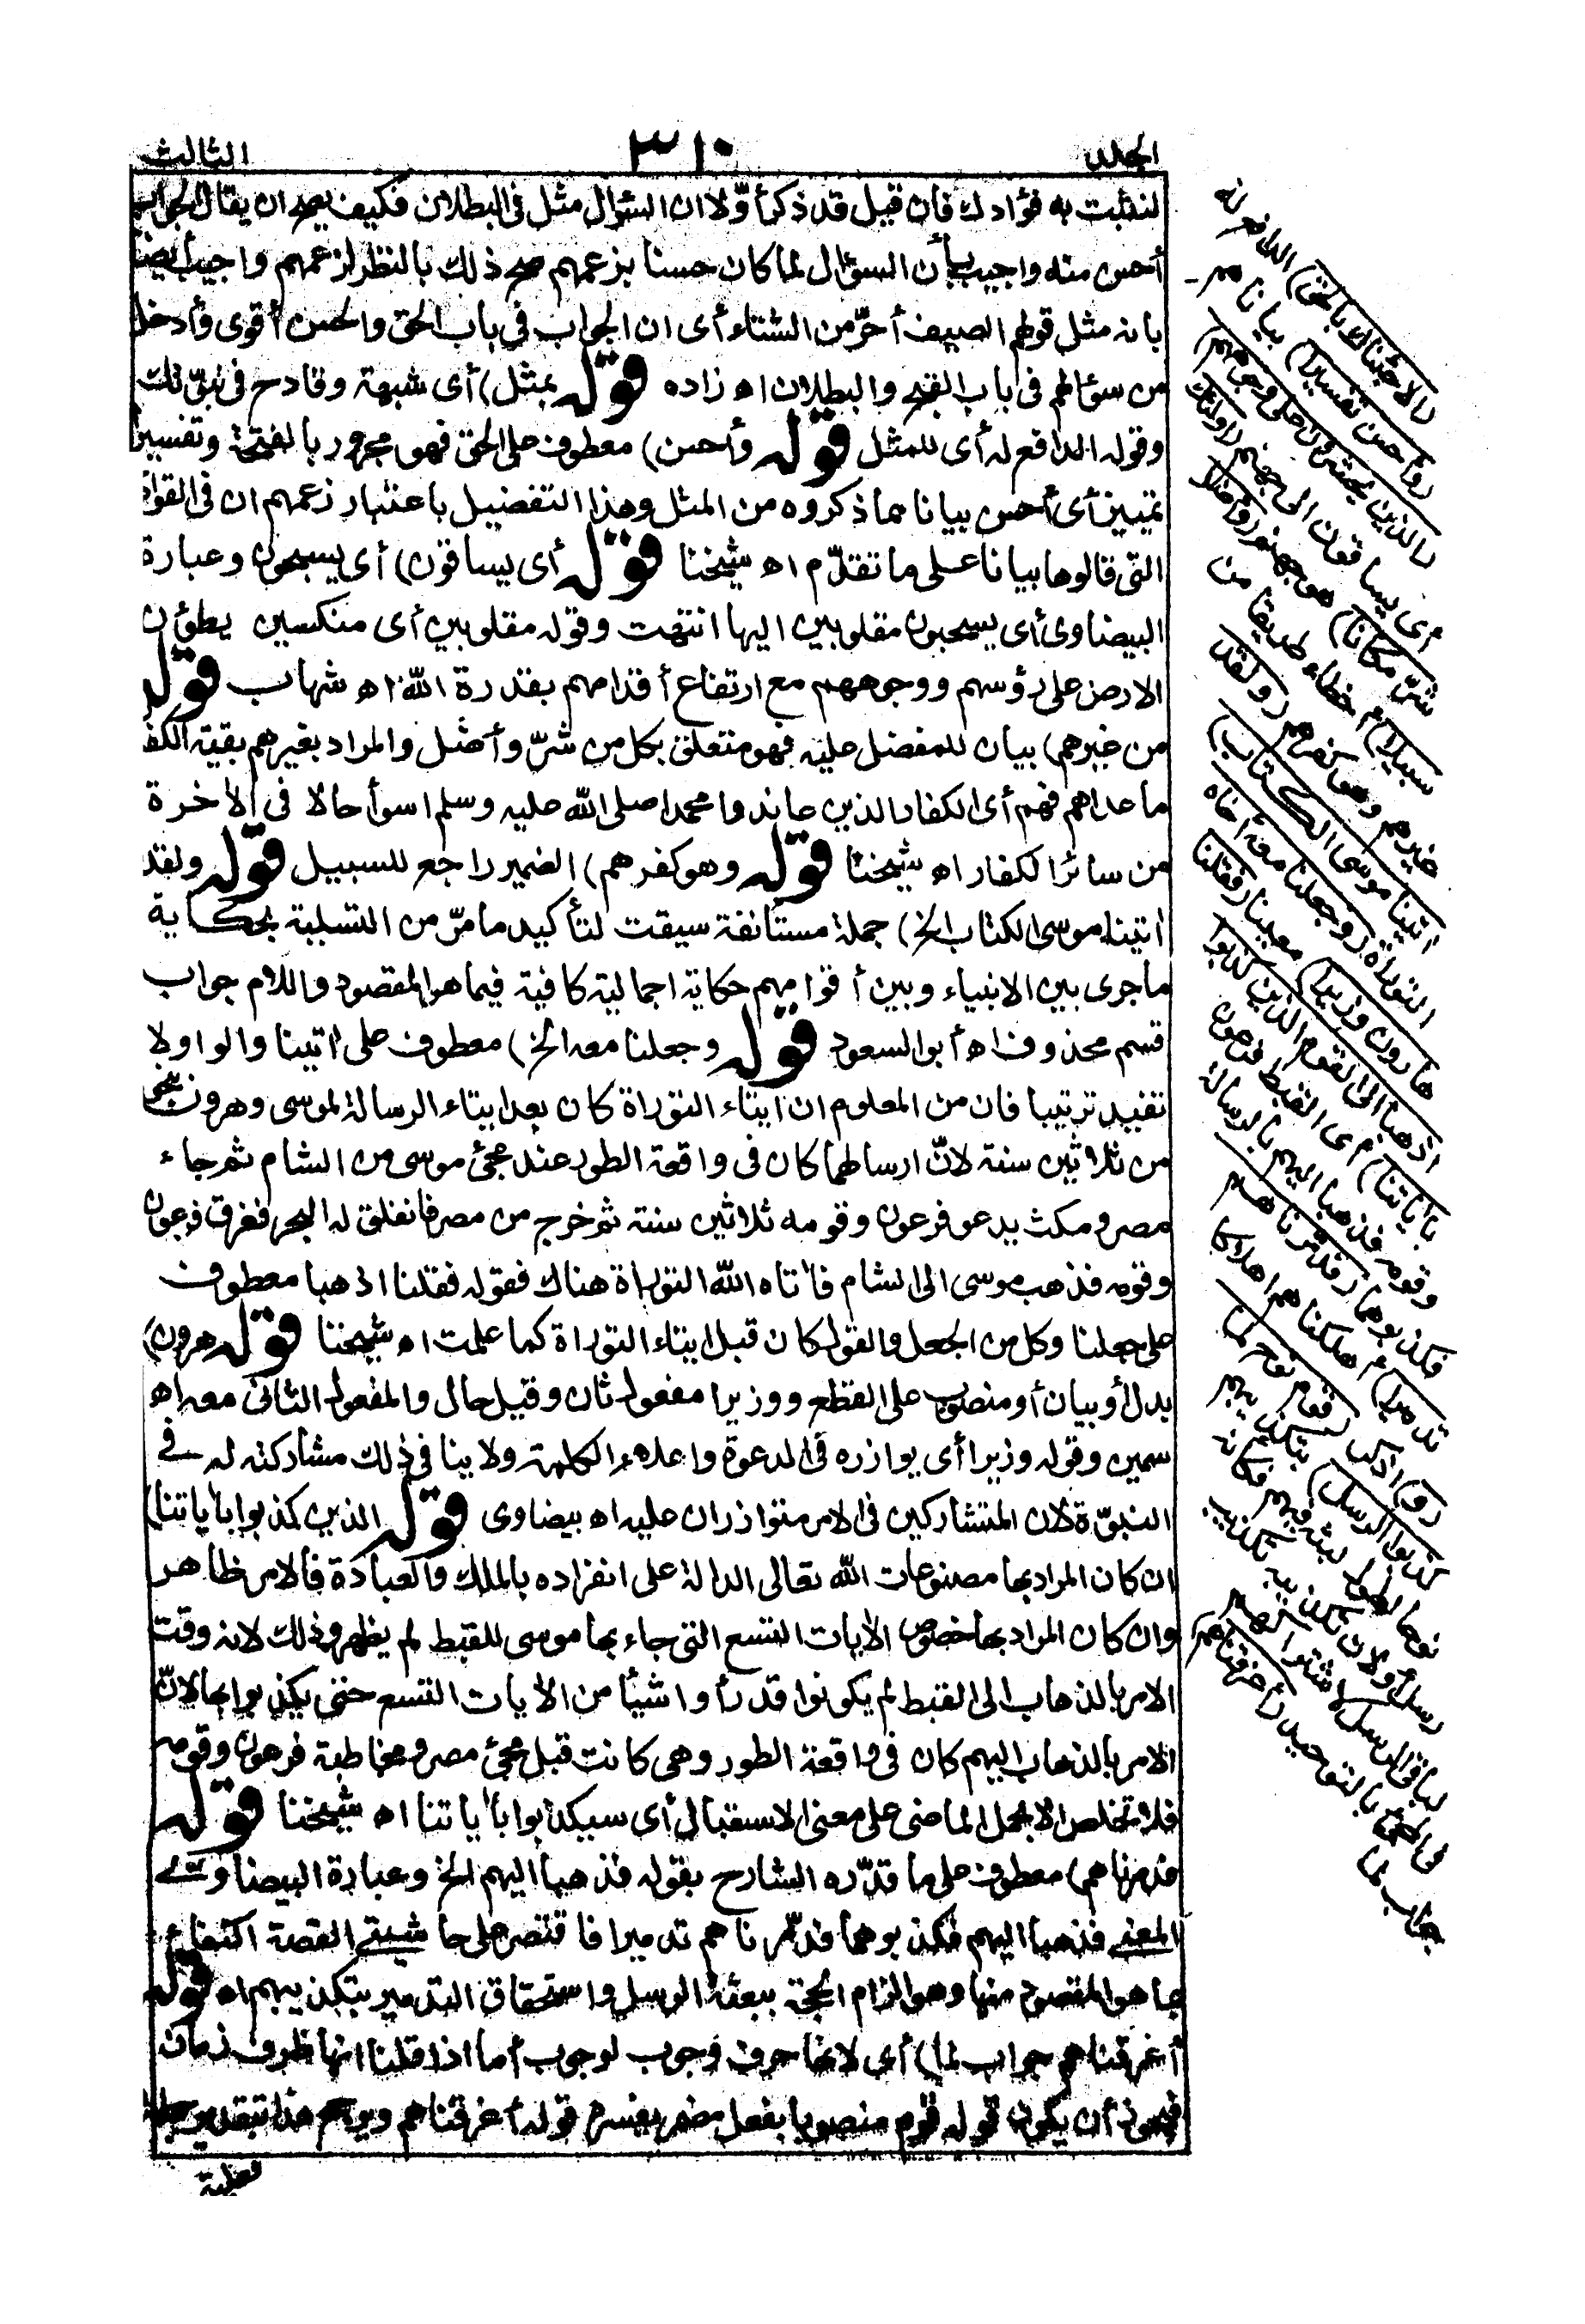 المجلد
٣١٠
الثالث
لنثبت به فؤادك فان قيل قد ذكر أوّلا ان السؤال مثل فى البطلان فكيف يصح ان يقال الجواب
أحسن منه واجيب بأن السؤال لما كان حسنا بزعمهم صح ذلك بالنظر لزعمهم واجيب أيضا
بانه مثل قولهم الصيف أحرّ من الشتاء أى ان الجواب فى باب الحق والحسن أقوى وأدخل
من سؤالهم فى باب القبح والبطلان اه زاده قوله بمثل) أى شبهة وقادح فى نبوّتك
وقوله الدافع له أى للمثل قوله وأحسن) معطوف على الحق فهو مجرور بالفتحة وتفسيرا
تمييز أى أحسن بيانا مما ذكروه من المثل وهذا التفضيل باعتبار زعمهم ان فى القوادح
التى قالوها بيانا على ما تقدّم اه شيخنا قوله أى يساقون) أى يسحبون وعبارة
البيضاوى أى يسحبون مقلوبين اليها انتهت وقوله مقلوبين أى منكسين يطؤن
الارض على رؤسهم ووجوههم مع ارتفاع أقدامهم بقدرة الله اه شهاب قوله
من غيرهم) بيان للمفضل عليه فهو متعلق بكل من شرّ وأضل والمراد بغيرهم بقية الكفار
ما عداهم فهم أى الكفار الذين عاندوا محمدا صلى الله عليه وسلم اسوأ حالا فى الآخرة
من سائر الكفار اه شيخنا قوله وهو كفرهم) الضمير راجع للسبيل قوله ولقد
آتينا موسى الكتاب الخ) جملة مستأنفة سيقت لتأكيد ما مرّ من التسلية بحكاية
ما جرى بين الانبياء وبين أقوامهم حكاية اجمالية كافية فيما هو المقصود واللام جواب
قسم محذوف اه أبو السعود قوله وجعلنا معه الخ) معطوف على آتينا والواو لا
تفيد ترتيبا فان من المعلوم ان ايتاء التوراة كان بعد ايتاء الرسالة لموسى وهرون بنحو
من ثلاثين سنة لانّ ارسالهما كان فى واقعة الطور عند مجئ موسى من الشام ثم جاء
مصر ومكث يدعو فرعون وقومه ثلاثين سنة ثم خرج من مصر فانفلق له البحر فغرق فرعون
وقومه فذهب موسى الى الشام فآتاه الله التوراة هناك فقوله فقلنا اذهبا معطوف
على جعلنا وكل من الجعل والقول كان قبل ايتاء التوراة كما علمت اه شيخنا قوله هرون)
بدل أو بيان أو منصوب على القطع ووزيرا مفعول ثان وقيل حال والمفعول الثانى معه اه
سمين وقوله وزيرا أى يوازره فى الدعوة واعلاء الكلمة ولا ينافى ذلك مشاركته له فى
النبوّة لان المتشاركين فى الامر متوازران عليه اه بيضاوى قوله الذين كذبوا بآياتنا)
ان كان المراد بها مصنوعات الله تعالى الدالة على انفراده بالملك والعبادة فالامر ظاهر
وان كان المراد بها خصوص الآيات التسع التى جاء بها موسى للقبط لم يظهر وذلك لانه وقت
الامر بالذهاب الى القبط لم يكونوا قد رأوا شيأ من الآيات التسع حتى يكذبوا بها لانّ
الامر بالذهاب اليهم كان فى واقعة الطور وهى كانت قبل مجئ مصر ومخاطبة فرعون وقومه
فلا تخلص الا بحمل الماضى على معنى الاستقبال أى سيكذبوا بآياتنا اه شيخنا قوله
فدمرناهم) معطوف على ما قدّره الشارح بقوله فذهبا اليهم الخ وعبارة البيضاوى
المعنى فذهبا اليهم فكذبوهما فدمّرناهم تدميرا فاقتصر على حاشيتى القصة اكتفاء
بما هو المقصود منها وهو الزام الحجة ببعثة الرسل واستحقاق التدمير بتكذيبهم اه قوله
أغرقناهم جواب لما) أى لانها حرف وجوب لوجوب أما اذا قلنا انها ظرف زمان
فيجوز أن يكون قوله قوم منصوبا بفعل مضمر يفسره قوله أغرقناهم ويوهم هذا بتقدير
فعلية
(الا جئناك بالحق) الدافع له
(وأحسن تفسيرا) بيانا هم
(الذين يحشرون على وجوههم)
أى يساقون الى جهنم (اولئك
شرّ مكانا) هو جهنم (وأضل
سبيلا) أخطأ طريقا من
غيرهم وهو كفرهم (ولقد
آتينا موسى الكتاب)
التوراة (وجعلنا معه أخاه
هارون وزيرا) معينا (فقلنا
اذهبا الى القوم الذين كذبوا
بآياتنا) أى القبط فرعون
وقومه فذهبا اليهم بالرسالة
فكذبوهما (فدمرناهم
تدميرا) أهلكناهم اهلاكا
(و) اذكر (قوم نوح لما
كذبوا الرسل) بتكذيبهم
نوحا لطول لبثه فيهم فكأنه
رسل أو لان تكذيبه تكذيب
لباقى الرسل لاشتراكهم
فى المجئ بالتوحيد (أغرقناهم)
جواب لما